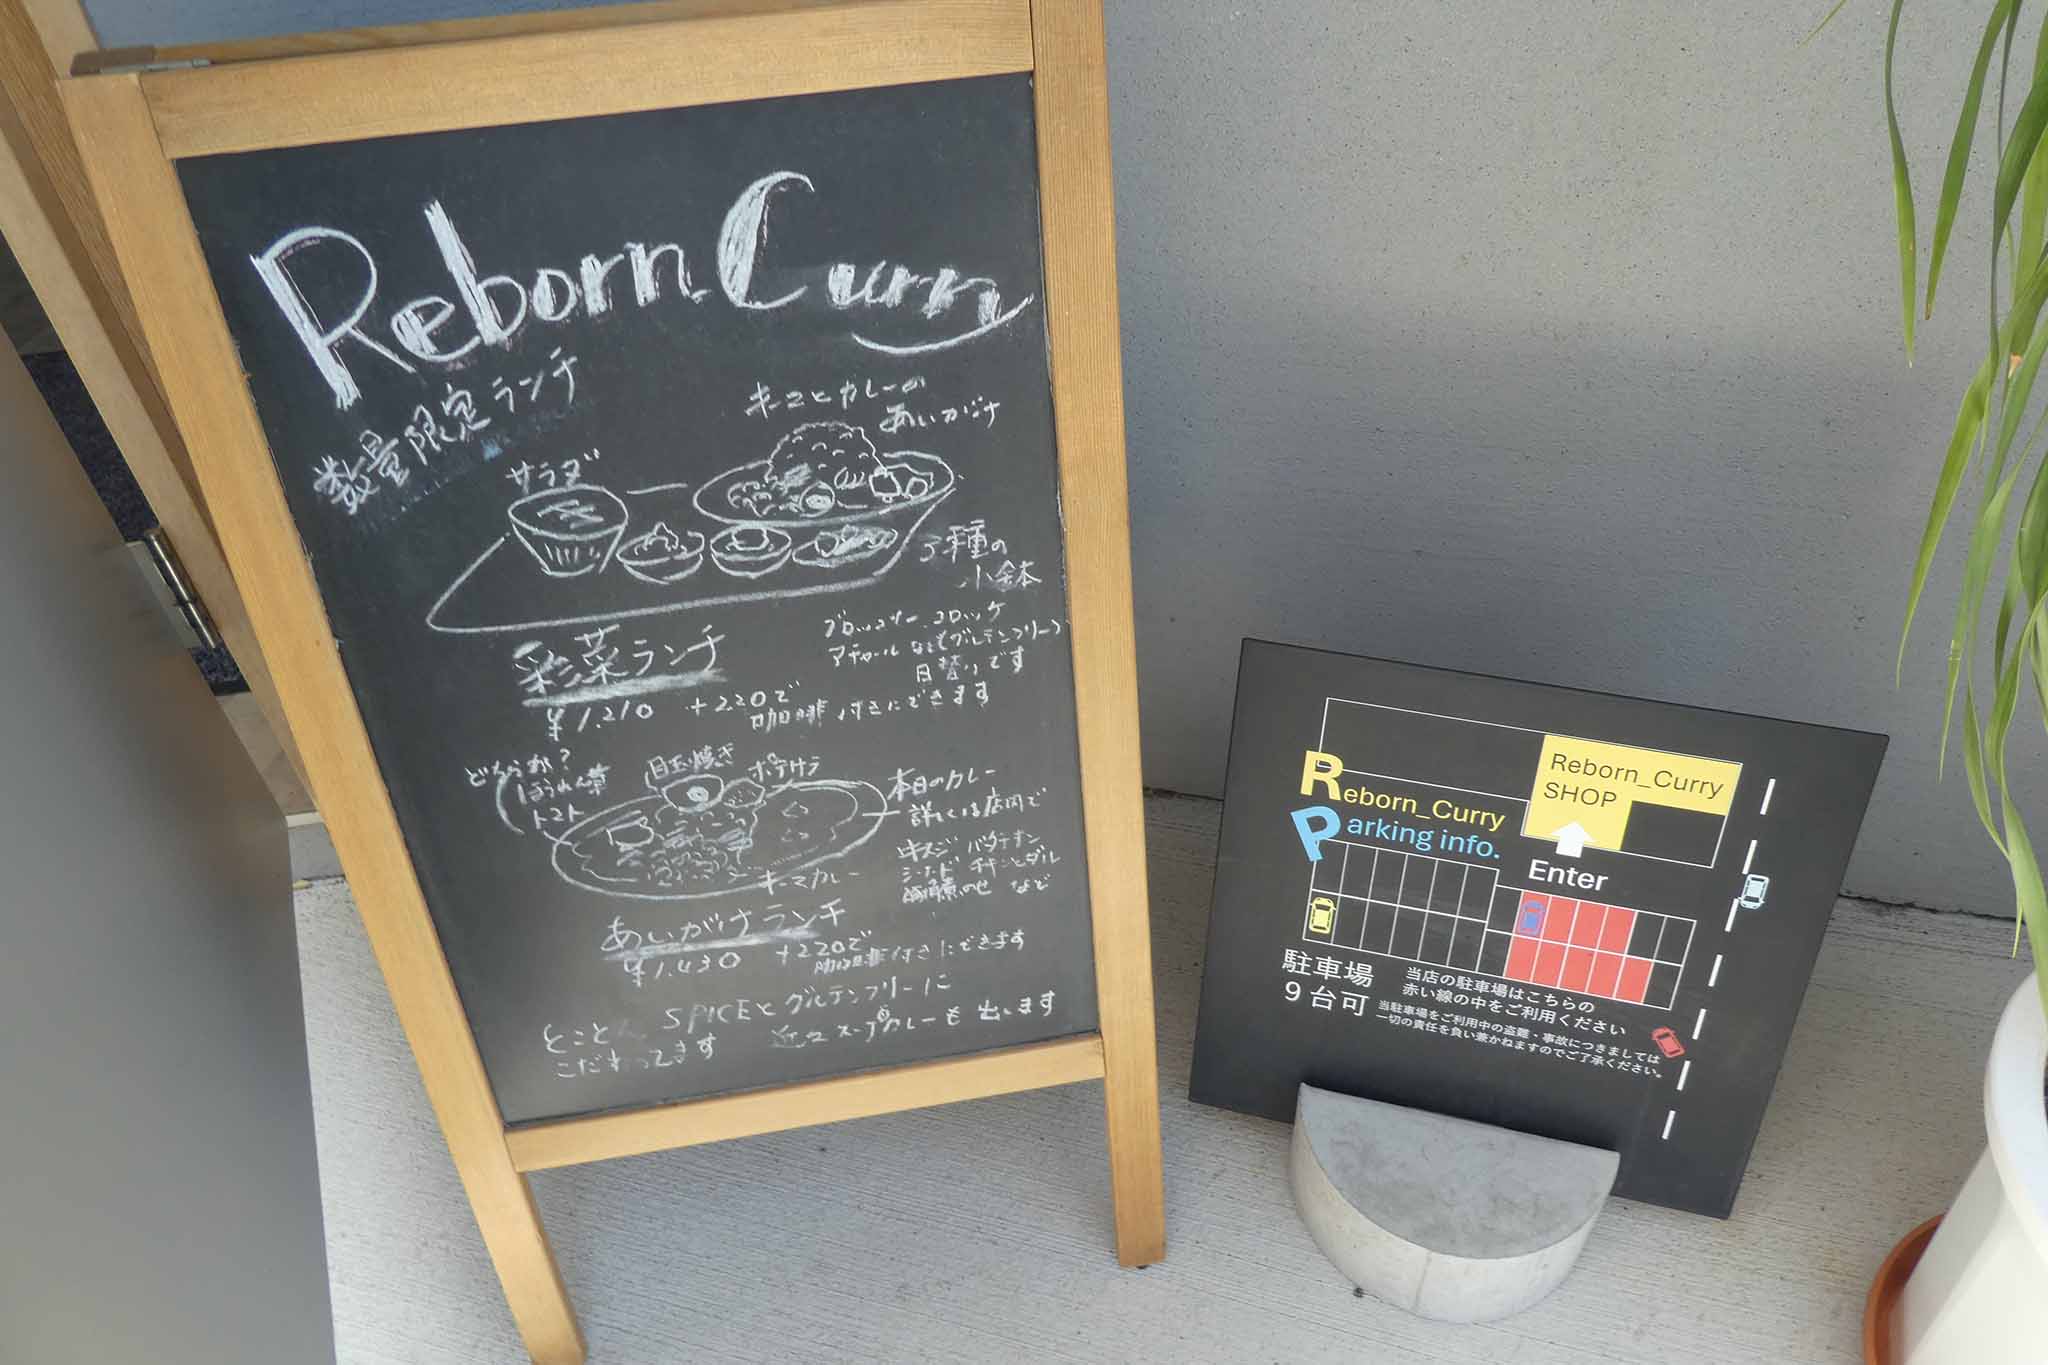 Reborn Curry
数量限定ランチ
キーマとカレーの
あいがけ
サラダ
3種の
小鉢
ブロッコリー コロッケ
アチャール などもグルテンフリーで
日替りです
彩菜ランチ
¥1.210
+220で
珈琲付きにできます
どちらか?
ほうれん草
トマト
目玉焼き
ポテサラ
本日のカレー
詳しくは店内で
牛スジ バタチキン
シーフード チキンとダル
豚角煮のせ など
キーマカレー
あいがけランチ
¥1.430
+220で
珈琲付きにできます
とことん SPICEとグルテンフリーに
こだわってます
近々スープカレーも出います
Reborn_Curry
SHOP
Reborn_Curry
Parking info.
Enter
駐車場
9台可
当店の駐車場はこちらの
赤い線の中をご利用ください
当駐車場をご利用中の盗難・事故につきましては
一切の責任を負い兼かねますのでご了承ください。